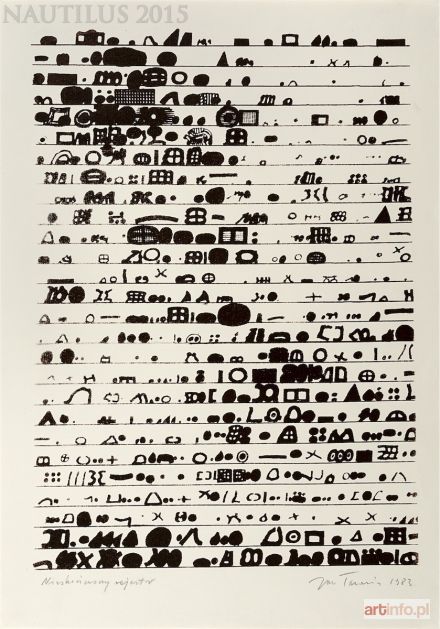 NAUTILUS 2015
Nieskończony rejestr
Jan Tarasin 1983
artinfo.pl